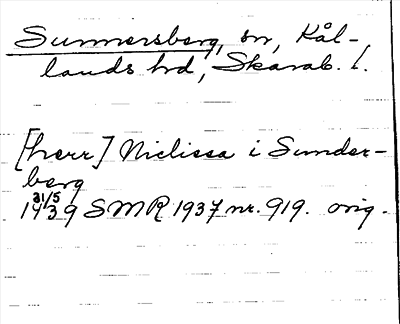 Sunnersberg, sn, Kål-
lands hd, Skarab. l.
[herr] Niclissa i Sunder-
berg
31/5
1439 SMR 1937 nr. 919. orig.